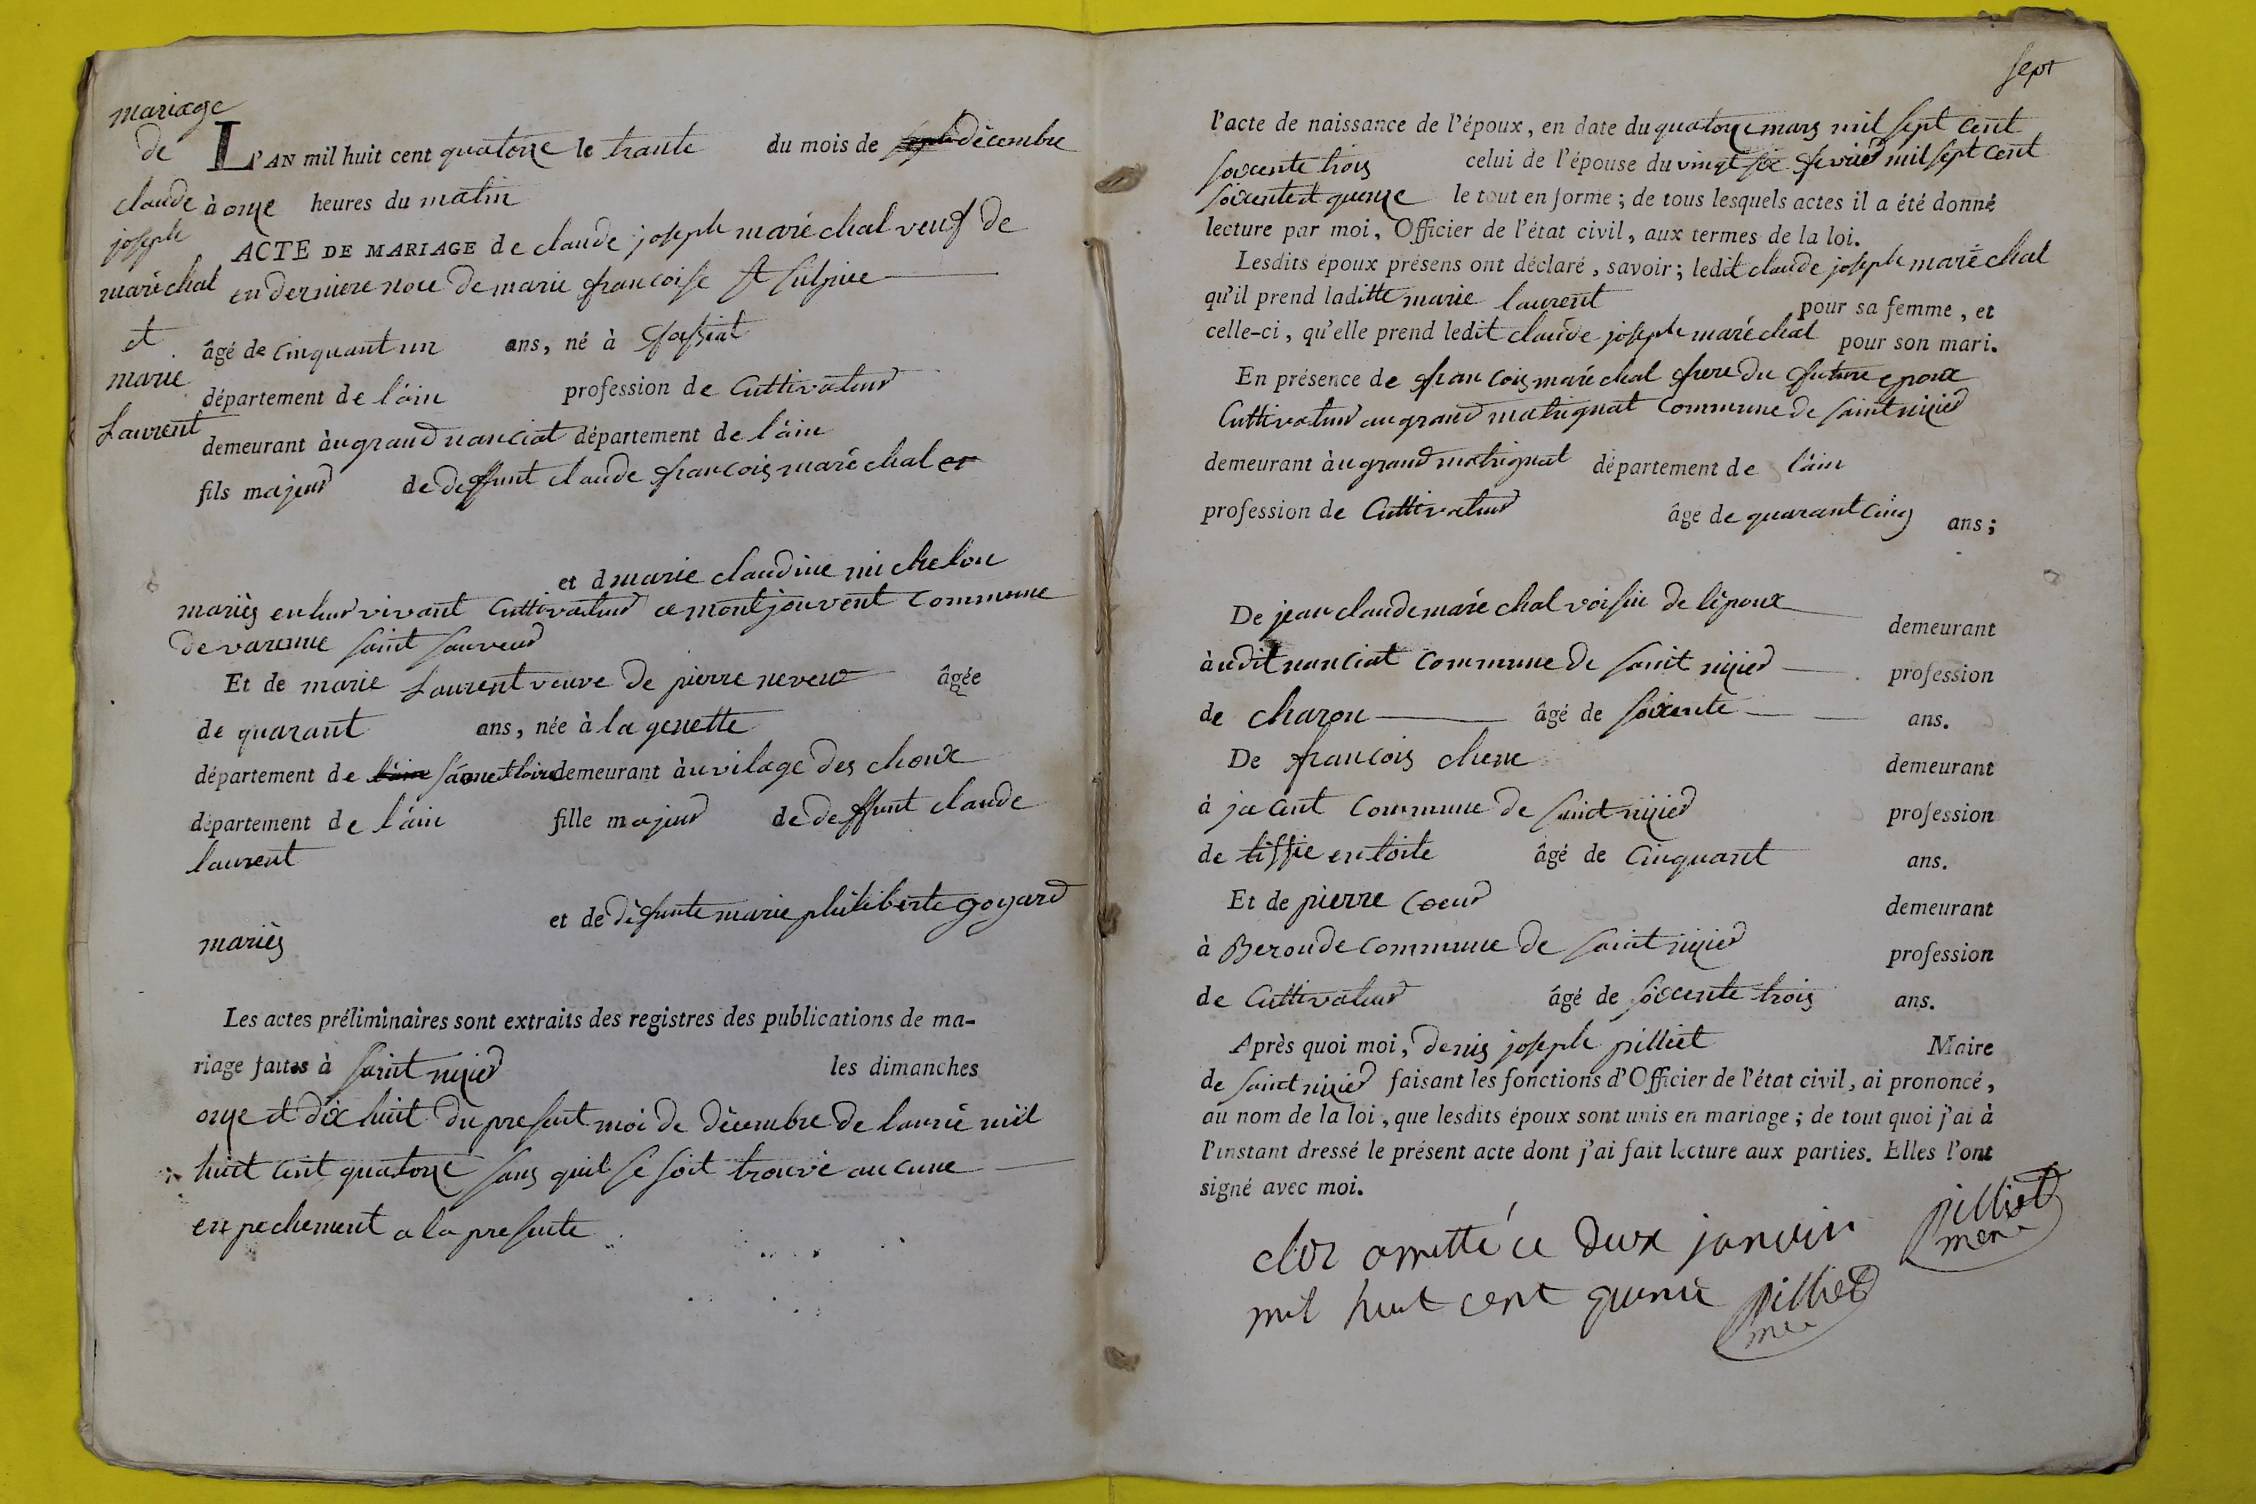 mariage
de
claude
joseph
maréchal
et
marie
Laurent
L'AN mil huit cent quatorze le trante du mois de décembre
à onze heures du matin
ACTE DE MARIAGE de claude joseph maréchal veuf de
en derniere noce de marie francoise St Sulpice
âgé de cinquant un ans, né à foissiat
département de l'ain profession de Cultivateur
demeurant àu grand nanciat département de l'ain
fils majeur de deffunt claude francois maréchal et
et d marie claudine michelon
mariès en leur vivant Cultivateur a montjouvent commune
de varenne saint sauveur
Et de marie Laurent veuve de pierre neveu âgée
de quarant ans, née à la genette
département de l'ain saonetloire demeurant àu vilage des choux
département de l'ain fille majeur de deffunt claude
laurent
et de dèfunte marie philiberte goyard
mariès
Les actes préliminaires sont extraits des registres des publications de ma-
riage faites à saint nizier les dimanches
onze et dix huit du present moi de dècembre de lanné mil
huit cent quatorze sans quil se soit trouvé aucune
enpechement a la presente
sept
l'acte de naissance de l'époux, en date du quatorze mars mil sept cent
soixente trois celui de l'épouse du vingt six fevrier mil sept cent
soixente et quinze le tout en forme ; de tous lesquels actes il a été donné
lecture par moi, Officier de l'état civil, aux termes de la loi.
Lesdits époux présens ont déclaré, savoir ; ledit claude joseph maréchal
qu'il prend laditte marie laurent pour sa femme, et
celle-ci, qu'elle prend ledit claude joseph maréchal pour son mari.
En présence de francois maréchal frere du future epoux
Cultivateur au grand matrignat commune de saint nizier
demeurant àu grand matrignat département de l'ain
profession de Cultivateur âgé de quarant cinq ans ;
De jean claude maréchal voisin de l'époux demeurant
àudit nanciat commune de saint nizier profession
de charon âgé de soixente ans.
De francois chene demeurant
à jacent commune de saint nizier profession
de tissie en toile âgé de cinquant ans.
Et de pierre coeur demeurant
à Beroude commune de saint nizier profession
de Cultivateur âgé de soixcente trois ans.
Après quoi moi, denis joseph pilliet Maire
de saint nizier faisant les fonctions d'Officier de l'état civil, ai prononcé,
au nom de la loi, que lesdits époux sont unis en mariage ; de tout quoi j'ai à
l'instant dressé le présent acte dont j'ai fait lecture aux parties. Elles l'ont
signé avec moi.
pilliet
mere
clos arretté ce deux janvier
mil huit cent quinze pilliet
mere